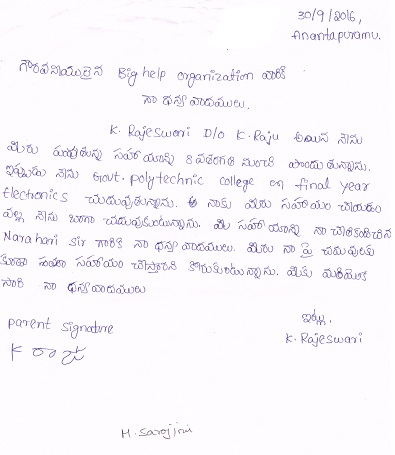 30/9/2016,
Anantapuramu.
గౌరవనీయులైన Big help organization వారికి
నా ధన్యవాదములు.
K. Rajeswari D/o K. Raju అయిన నేను
మీరు పంపుతున్న సహాయాన్ని 8 వతరగతి నుంచి పొందుతున్నాను.
ఇప్పుడు నేను Govt. polytechnic college లో final year
Electronics చదువుతున్నాను. ఈ నాకు మీరు సహాయం చేయడం
వల్ల నేను బాగా చదువుకుంటున్నాను. మీ సహాయాన్ని నా
Narahari sir గారికి నా ధన్యవాదములు. మీరు నా పై చదువులకు
కూడా సహాయం చేస్తారని కోరుకుంటున్నాను. మీకు మరియొక
సారి నా ధన్యవాదములు
ఇట్లు,
K. Rajeswari
parent signature
K రాజు
M. Sarojini